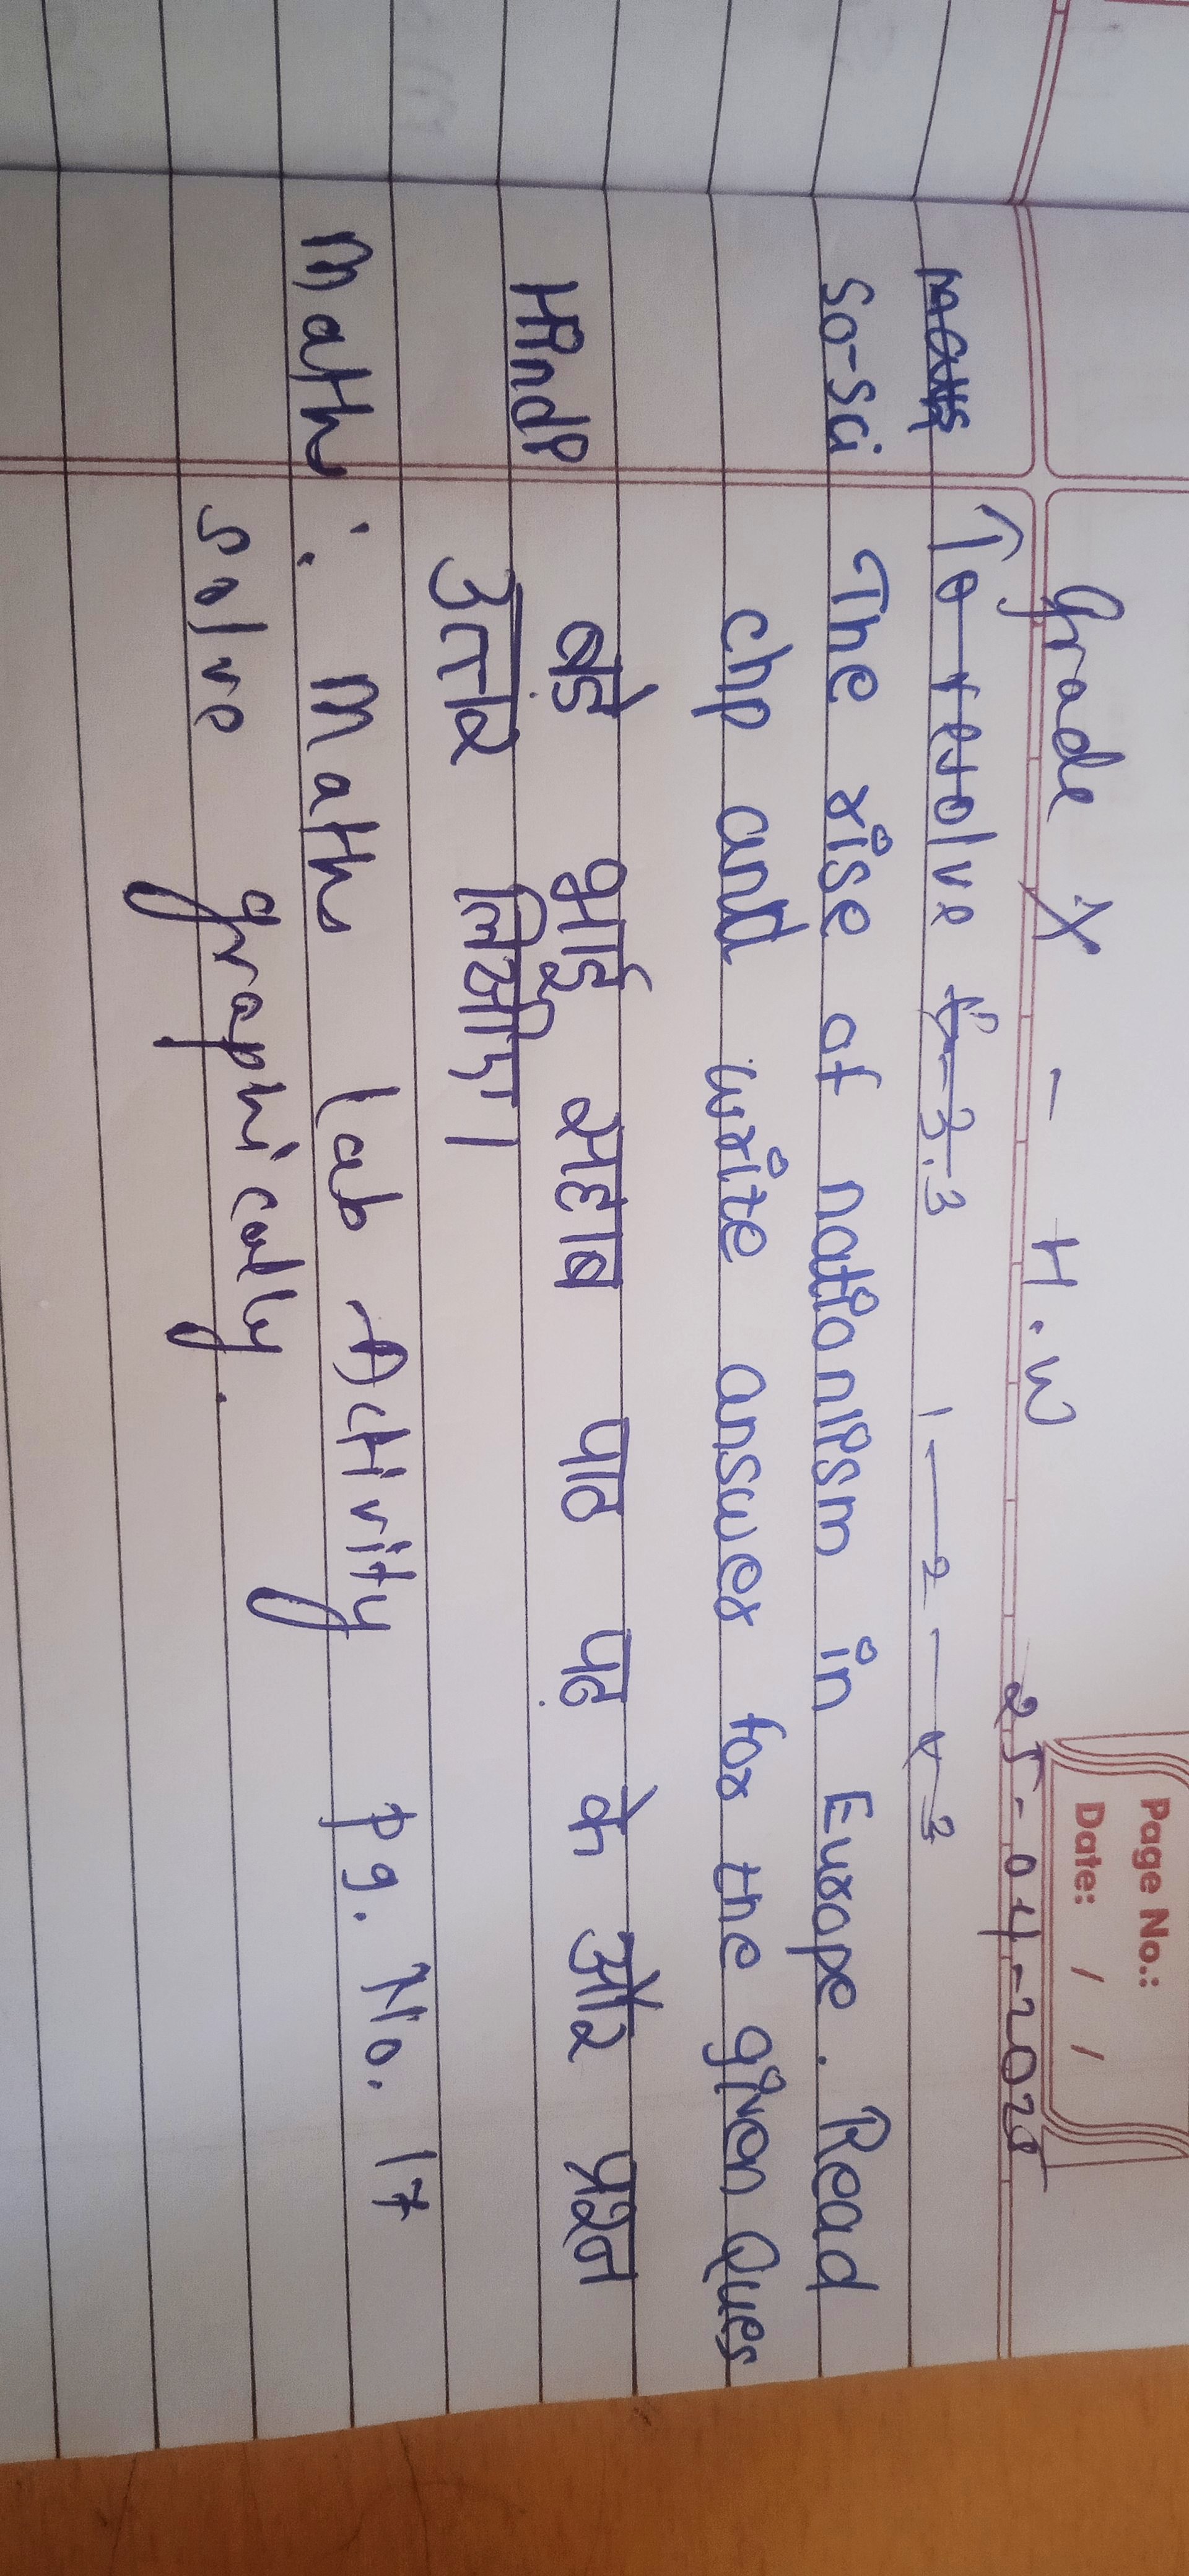 Page No.:
Date: / /
Grade X - H.W 25-04-2025
To resolve 3.3 1 — 2 -
So-Sci The rise of nationlism in Europe. Read
chp and write answer for the given Ques
Hindi बडे भाई सहाब पाठ पढ के और प्रश्न
उत्तर लिखीए।
Maths : Maths lab Activity Pg. No. 17
solve graphically.